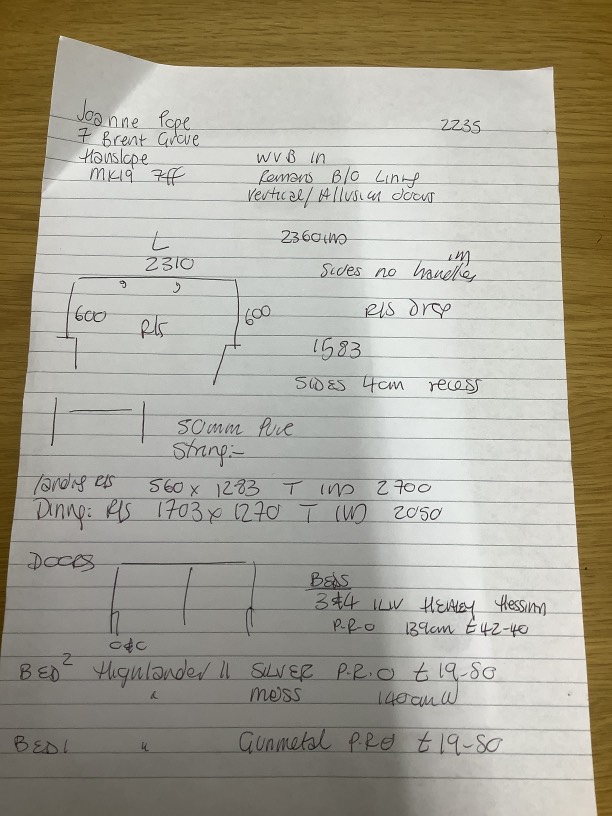 Joanne Pope
2235
7 Brent Grove
Hanslope
MK19 7FF
WVB In
Romans B/O Lining
Vertical/Allusion doors
L
2310
2360(W)
Sides no handles
600
R/s
600
R/S Drop
1583
SIDES 4cm recess
50mm Pure
String:-
landing R/s 560 x 1283 T (W) 2700
Dining: R/s 1703 x 1270 T (W) 2050
DOORS
O&O
BEDS
3&4 HEALEY Hessian
P.R.O 139cm £42-40
BED 2 Highlander 11 SILVER P.R.O £19-80
" moss 140cm W
BED 1 " Gunmetal P.R.O £19-80